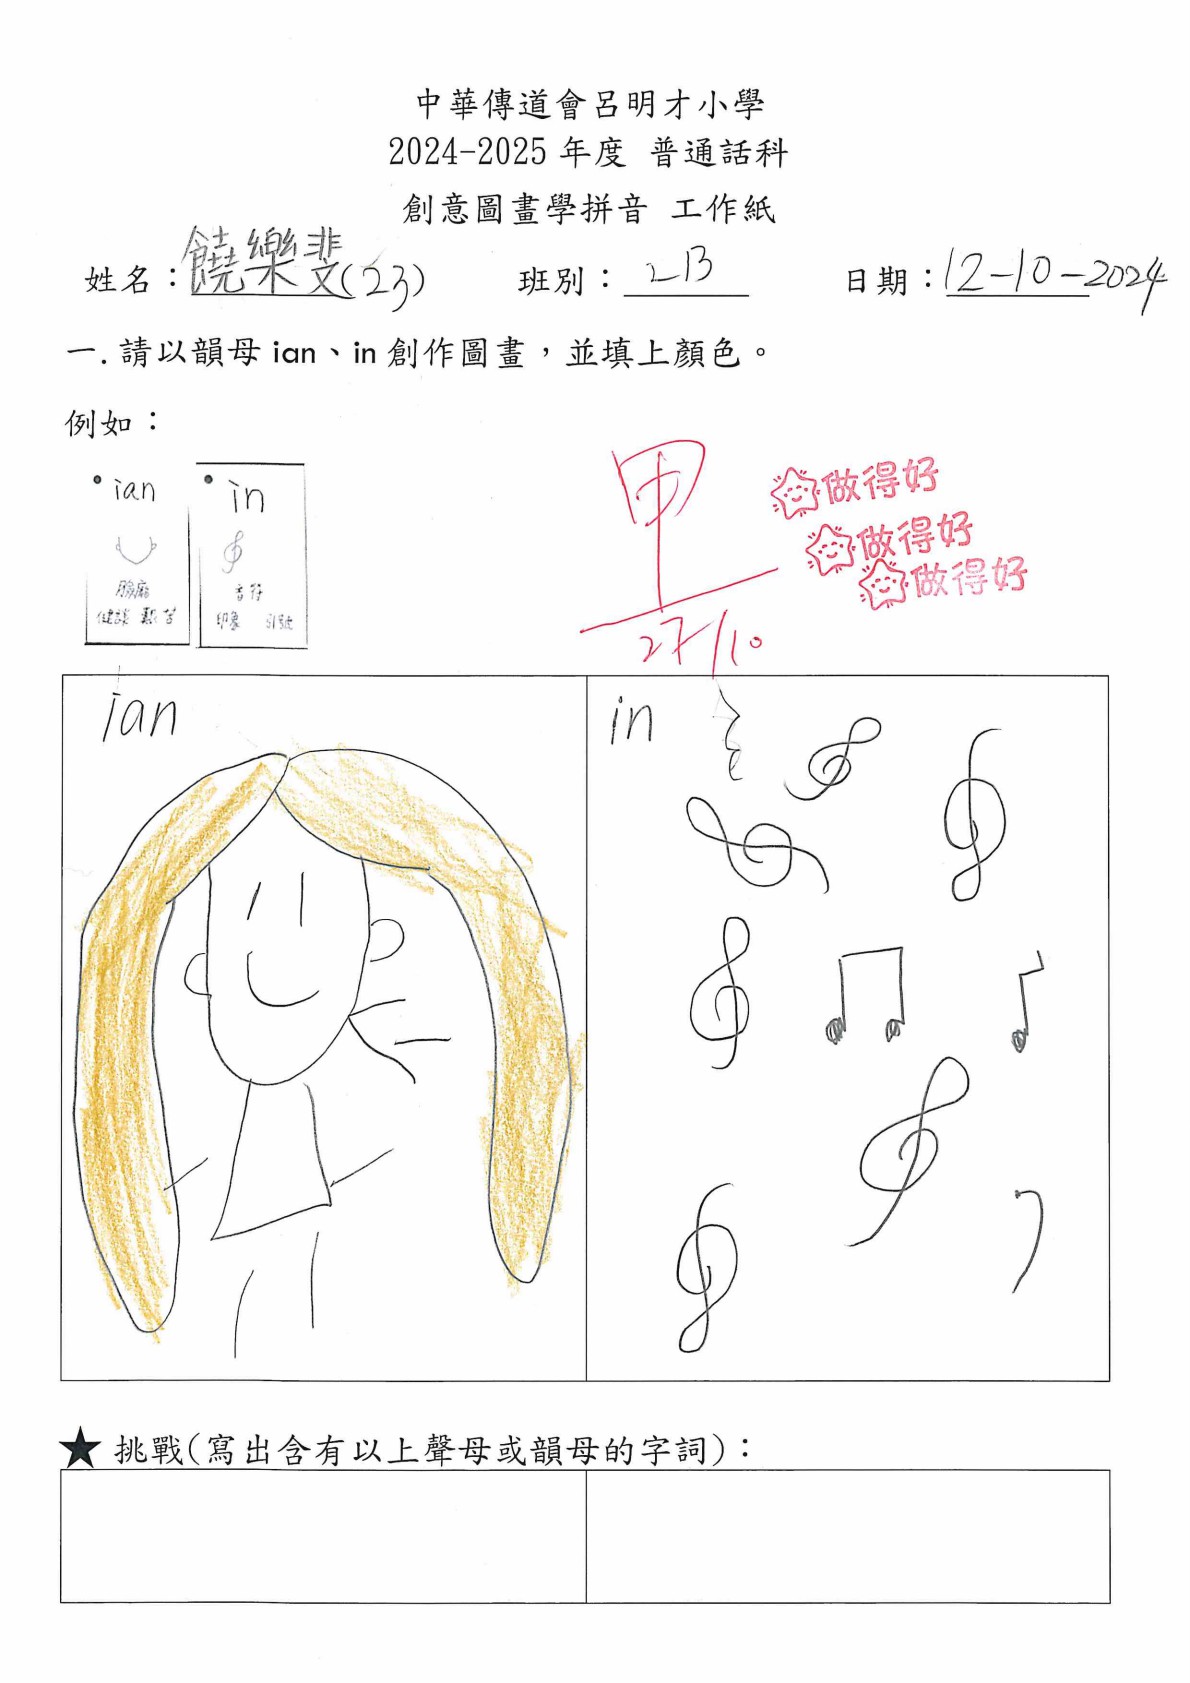 中華傳道會呂明才小學
2024-2025 年度 普通話科
創意圖畫學拼音 工作紙
姓名：饒樂斐(23) 班別：2B 日期：12-10-2024
一. 請以韻母 ian、in 創作圖畫，並填上顏色。
例如：
ian
臉龐
健談 艱苦
in
音符
印象 引號
甲
27/10
做得好
做得好
做得好
ian
in
★ 挑戰(寫出含有以上聲母或韻母的字詞)：